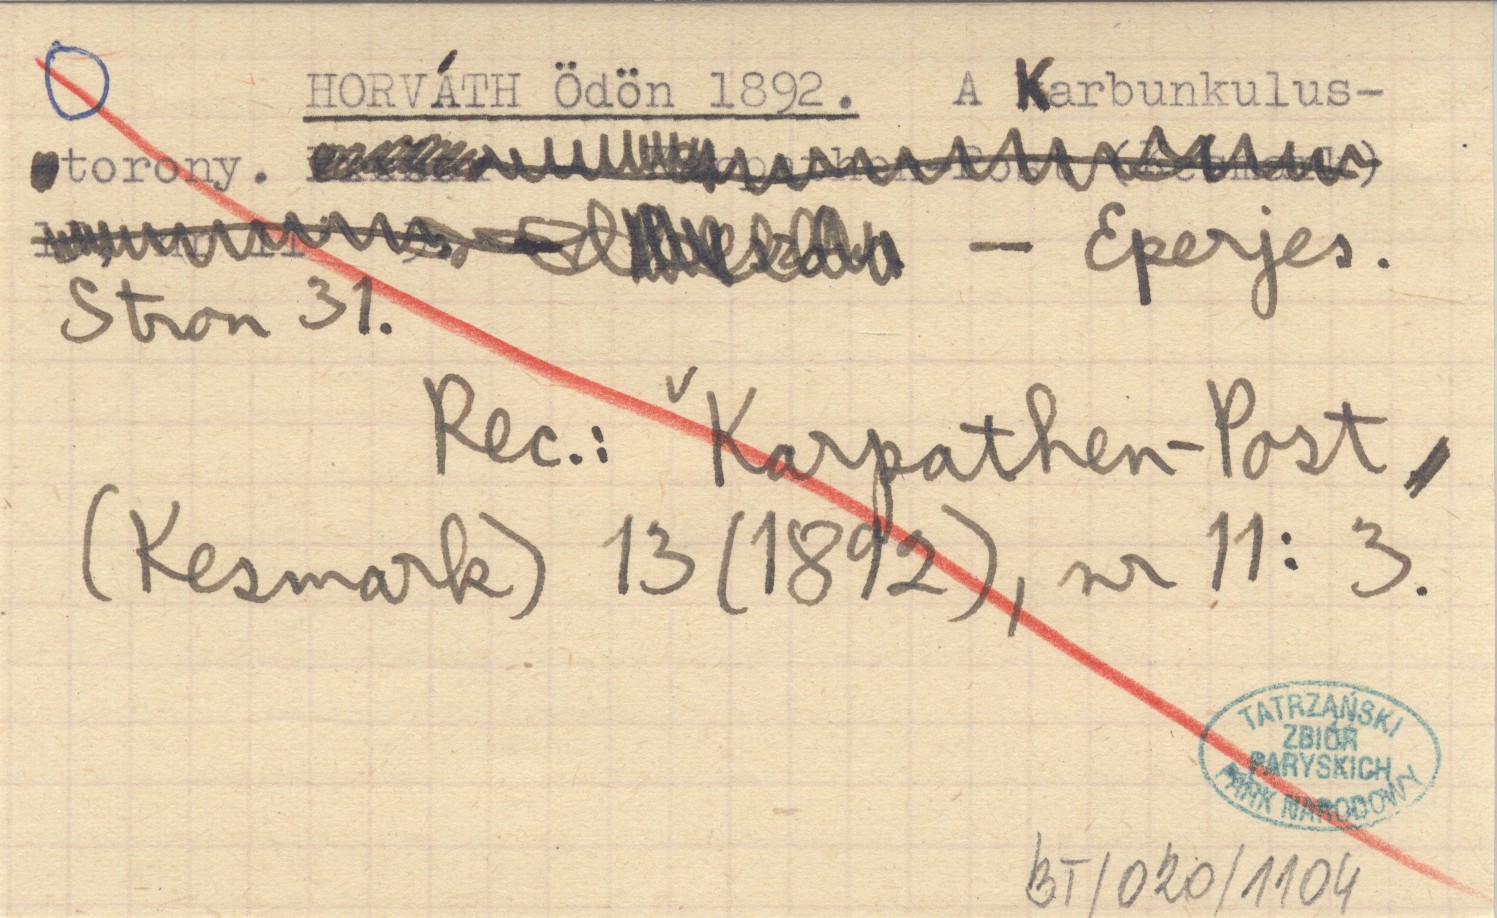 HORVÁTH Ödön 1892. A Karbunkulus-
torony.
— Eperjes.
Stron 31.
Rec.: Karpathen-Post,
(Kesmark) 13 (1892), nr 11: 3.
TATRZAŃSKI
ZBIÓR
PARYSKICH
PARK NARODOWY
BT/020/1104